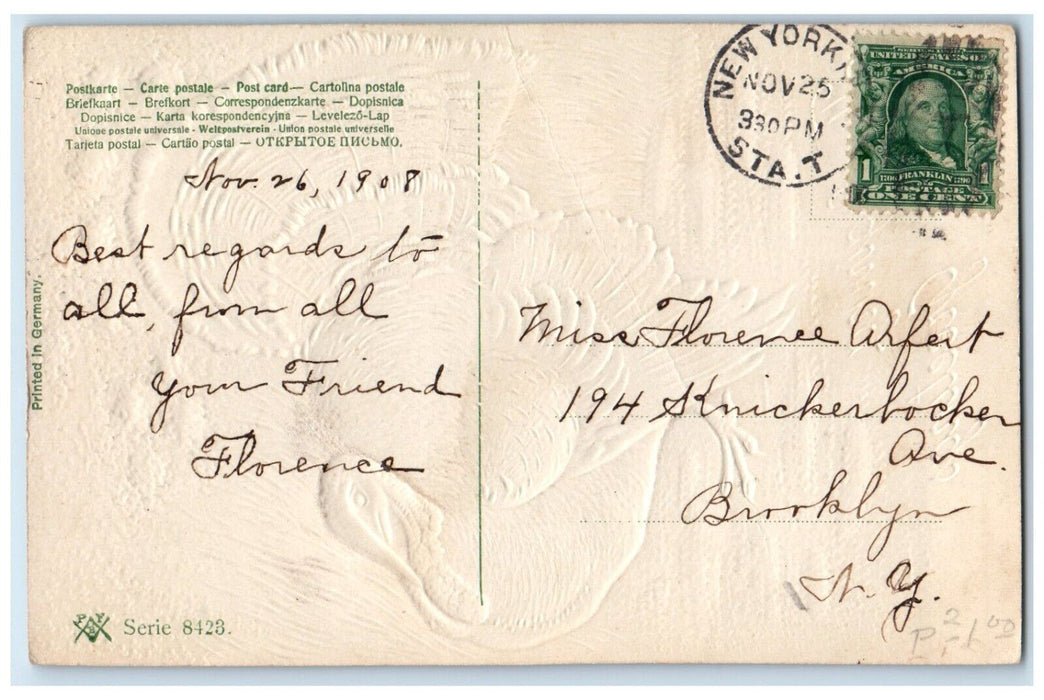 Postkarte – Carte postale – Post card – Cartolina postale
Briefkaart – Brefkort – Correspondenzkarte – Dopisnica
Dopisnice – Karta korespondencyjna – Levelező-Lap
Unione postale universale - Weltpostverein - Union postale universelle
Tarjeta postal – Cartão postal – ОТКРЫТОЕ ПИСЬМО.
Nov. 26, 1908
Best regards to
all, from all
your Friend
Florence
Printed in Germany.
Serie 8423.
NEW YORK,
NOV 25
330 PM
STA. T
UNITED STATES OF
AMERICA
1 FRANKLIN 1
POSTAGE
ONE CENT
Miss Florence Arfert
194 Knickerbocker
Ave.
Brooklyn
N. Y.